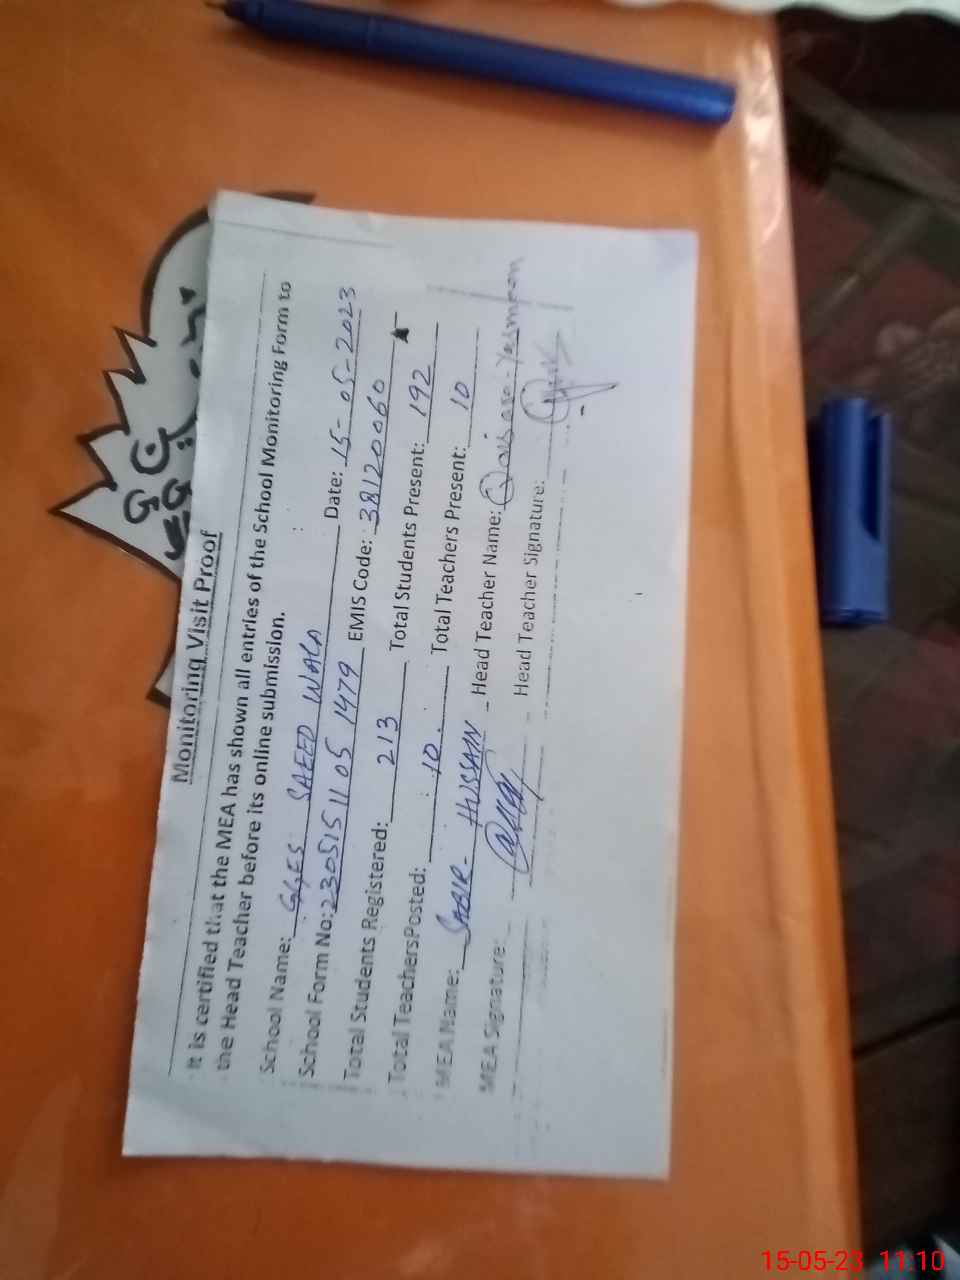 Monitoring Visit Proof
It is certified that the MEA has shown all entries of the School Monitoring Form to
the Head Teacher before its online submission.
School Name: GGES SAEED WALA Date: 15-05-2023
School Form No: 230515 1105 1479 EMIS Code: 38120060
Total Students Registered: 213 Total Students Present: 192
Total TeachersPosted: 10 Total Teachers Present: 10
MEA Name: SABIR HUSSAIN Head Teacher Name: Yasmeen
MEA Signature: Head Teacher Signature:
15-05-23 11:10